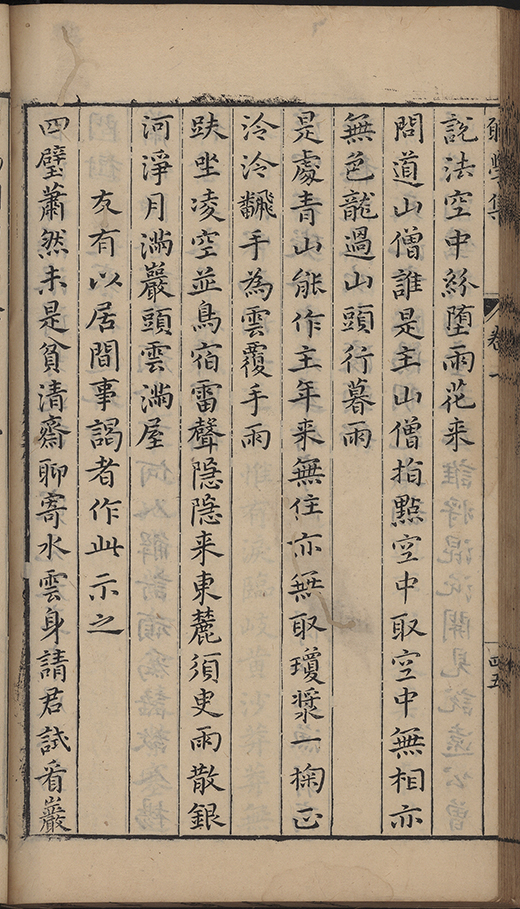 說法空中紛墮雨花来
問道山僧誰是主山僧指點空中取空中無相亦
無色龍過山頭行暮雨
是處青山能作主年来無住亦無取瓊漿一掬正
泠泠飜手為雲覆手雨
趺坐凌空並鳥宿雷聲隠隠来東麓須臾雨散銀
河淨月滿巖頭雲滿屋
友有以居間事謁者作此示之
四壁蕭然未是貧清齋聊寄水雲身請君試看巖
卷一
四五